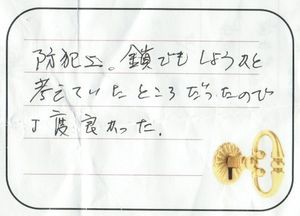 防犯上。鎖でもしようかと
考えていたところだったので
丁度良かった。